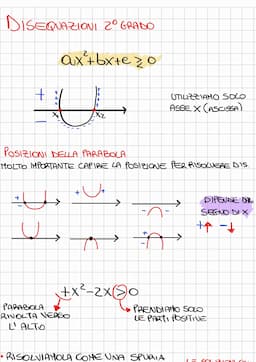 DISEQUAZIONI 2° GRADO
ax²+bx+c ⩾ 0
+
-
X₁ X₂
UTILIZZIAMO SOLO
ASSE X (ASCISSA)
POSIZIONI DELLA PARABOLA
MOLTO IMPORTANTE CAPIRE LA POSIZIONE PER RISOLVERE DIS.
DIPENDE DAL
SEGNO DI X
+↑ -↓
+x²-2x>0
PARABOLA
RIVOLTA VERSO
L'ALTO
PRENDIAMO SOLO
LE PARTI POSITIVE
• RISOLVIAMOLA COME UNA SPURIA